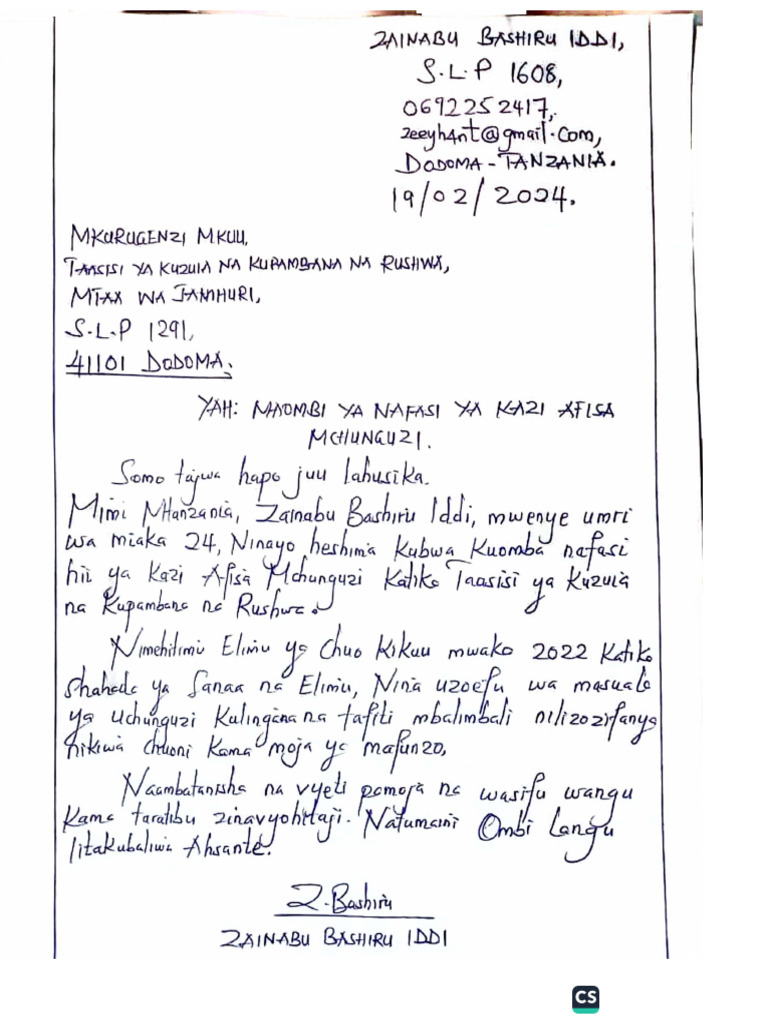 ZAINABU BASHIRU IDDI,
S.L.P 1608,
0692252417,
zeeyh4nt@gmail.com,
DODOMA-TANZANIA.
19/02/2024.
MKURUGENZI MKUU,
TAASISI YA KUZUIA NA KUPAMBANA NA RUSHWA,
MTAA WA JAMHURI,
S.L.P 1291,
41101 DODOMA.
YAH: MAOMBI YA NAFASI YA KAZI AFISA
MCHUNGUZI.
Somo tajwa hapo juu lahusika.
Mimi Mtanzania, Zainabu Bashiru Iddi, mwenye umri
wa miaka 24, Ninayo heshima Kubwa Kuomba nafasi
hii ya Kazi Afisa Mchunguzi Katika Taasisi ya Kuzuia
na Kupambana na Rushwa.
Nimehitimu Elimu ya Chuo Kikuu mwaka 2022 Katika
Shahada ya Sanaa na Elimu, Nina uzoefu wa masuala
ya uchunguzi Kulingana na tafiti mbalimbali nilizozifanya
nikiwa chuoni Kama moja ya mafunzo,
Naambatanisha na vyeti pamoja na wasifu wangu
Kama taratibu zinavyohitaji. Natumaini Ombi Langu
litakubaliwa Ahsante.
Z.Bashiru
ZAINABU BASHIRU IDDI
CS